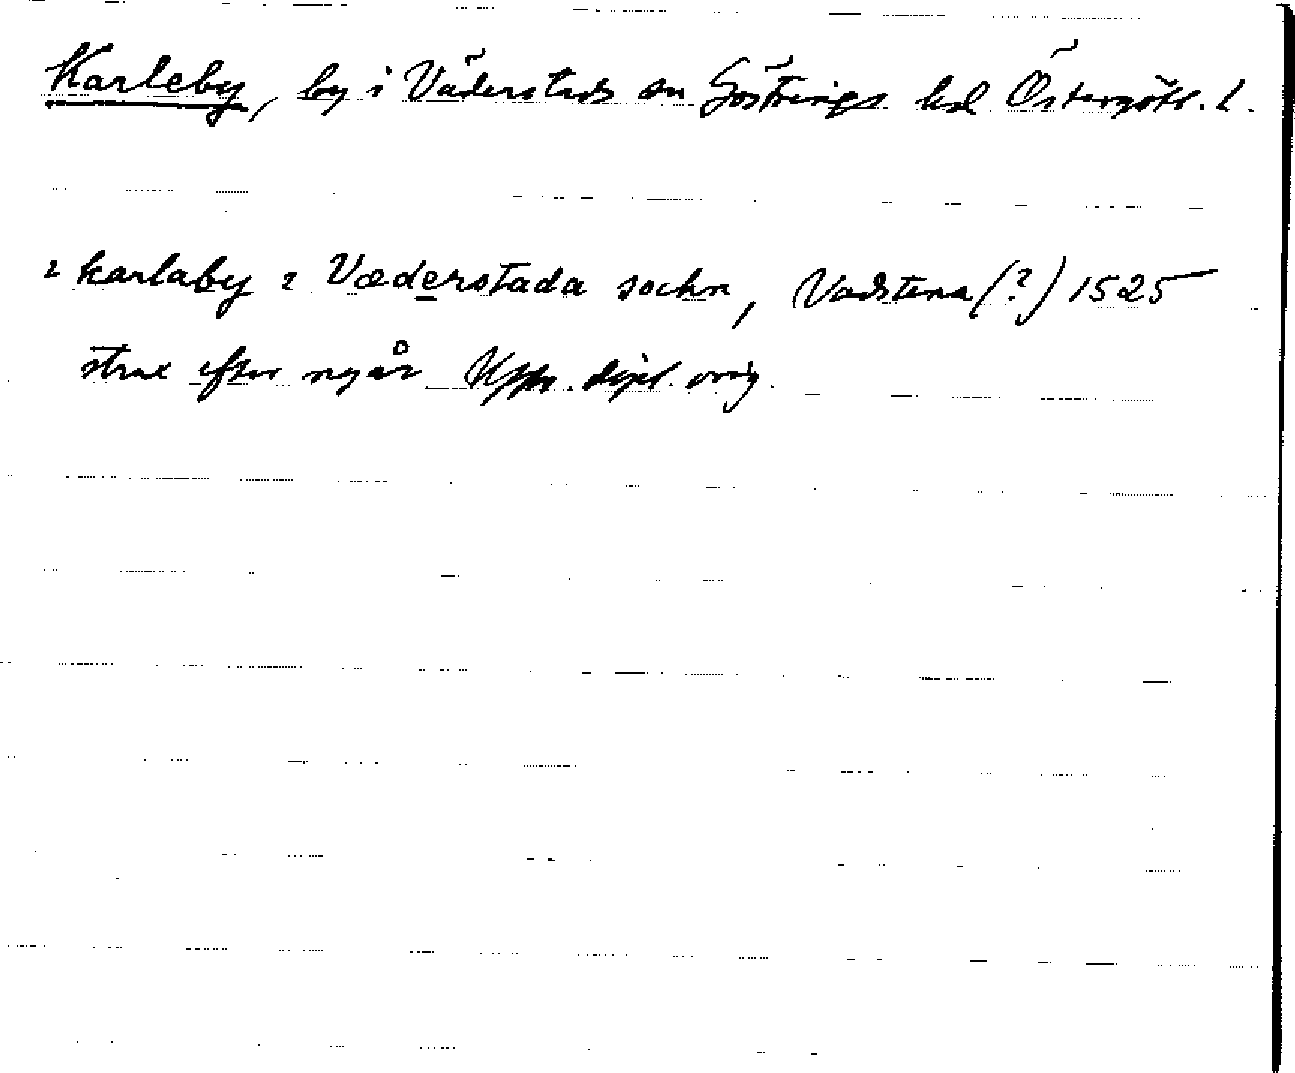 Karleby, by i Väderstads sn Göstrings hd Östergötl. l.
i karlaby i Væderstada sochn, Vadstena (?) 1525
strax efter nyår Upps. dipl. orig.